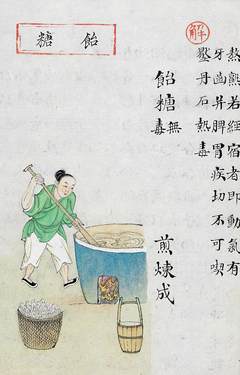 熱熟若經宿者即動氣有
牙齒并脾胃疾切不可喫
解
壓丹石熱毒
飴糖 無毒 煎煉成
飴糖